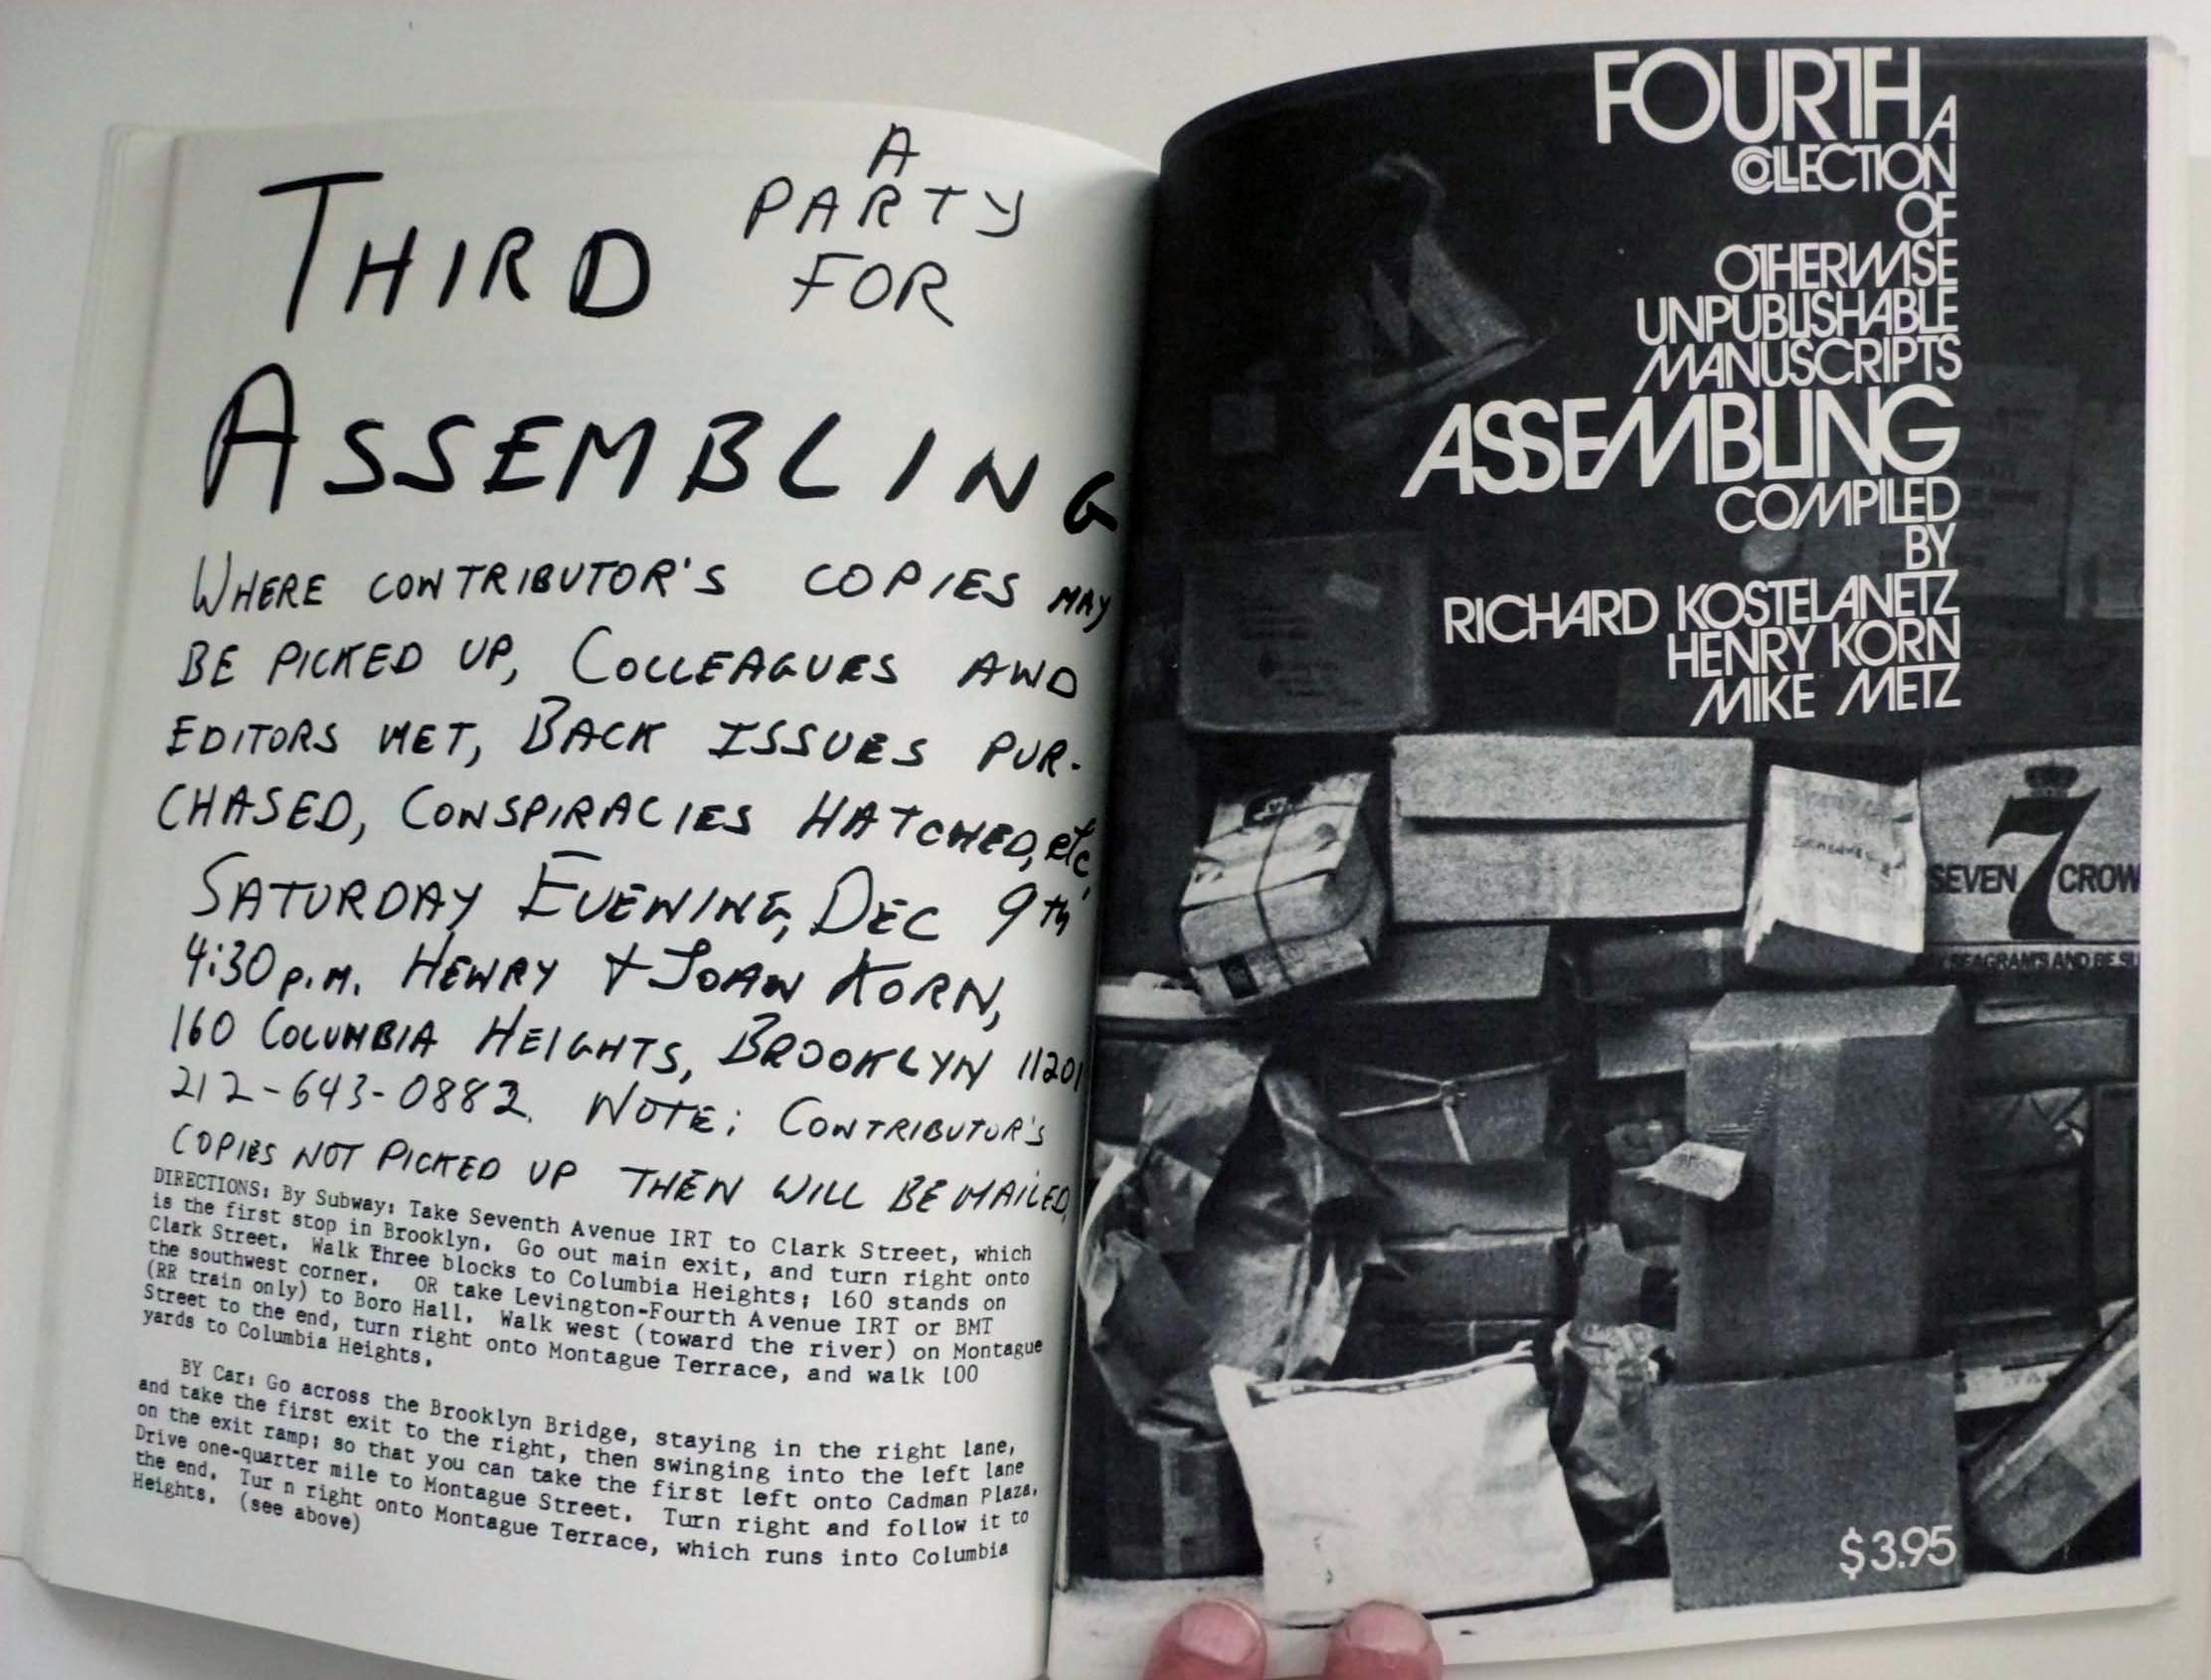 A
PARTY
FOR
THIRD
ASSEMBLING
WHERE CONTRIBUTOR'S COPIES MAY
BE PICKED UP, COLLEAGUES AND
EDITORS MET, BACK ISSUES PUR-
CHASED, CONSPIRACIES HATCHED, etc.
SATURDAY EVENING, DEC 9th
4:30 p.m. HENRY + JOAN KORN,
160 COLUMBIA HEIGHTS, BROOKLYN 11201
212-643-0882. NOTE: CONTRIBUTOR'S
COPIES NOT PICKED UP THEN WILL BE MAILED.
DIRECTIONS: By Subway: Take Seventh Avenue IRT to Clark Street, which
is the first stop in Brooklyn. Go out main exit, and turn right onto
Clark Street. Walk three blocks to Columbia Heights; 160 stands on
the southwest corner. OR take Levington-Fourth Avenue IRT or BMT
(RR train only) to Boro Hall. Walk west (toward the river) on Montague
Street to the end, turn right onto Montague Terrace, and walk 100
yards to Columbia Heights.
BY Car: Go across the Brooklyn Bridge, staying in the right lane,
and take the first exit to the right, then swinging into the left lane
on the exit ramp; so that you can take the first left onto Cadman Plaza.
Drive one-quarter mile to Montague Street. Turn right and follow it to
the end. Tur n right onto Montague Terrace, which runs into Columbia
Heights. (see above)
FOURTH A
COLLECTION
OF
OTHERWISE
UNPUBLISHABLE
MANUSCRIPTS
ASSEMBLING
COMPILED
BY
RICHARD KOSTELANETZ
HENRY KORN
MIKE METZ
SEVEN 7 CROW
SEAGRAM'S AND BE SU
$3.95